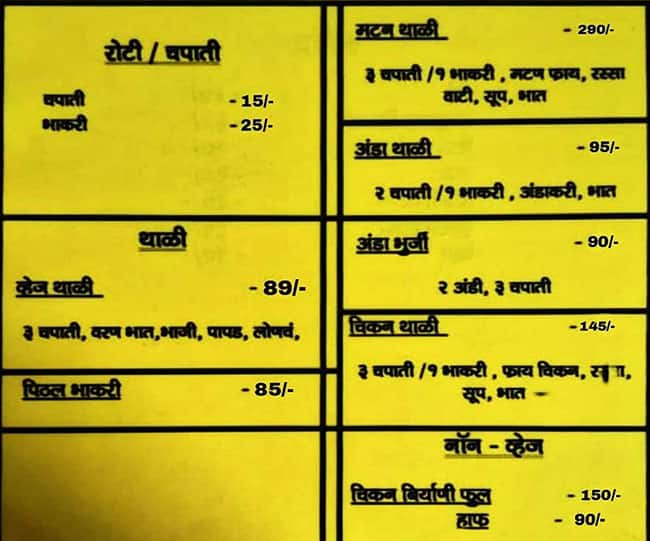 रोटी / चपाती
चपाती - 15/-
भाकरी - 25/-
थाळी
व्हेज थाळी - 89/-
३ चपाती, वरण भात,भाजी, पापड, लोणचं,
पिठल भाकरी - 85/-
मटन थाळी - 290/-
३ चपाती /१ भाकरी , मटण फ्राय, रस्सा
वाटी, सूप, भात
अंडा थाळी - 95/-
२ चपाती /१ भाकरी , अंडाकरी, भात
अंडा भुर्जी - 90/-
२ अंडी, ३ चपाती
चिकन थाळी -145/-
३ चपाती /१ भाकरी , फ्राय चिकन,
सूप, भात -
नॉन - व्हेज
चिकन बिर्याणी फुल - 150/-
हाफ - 90/-